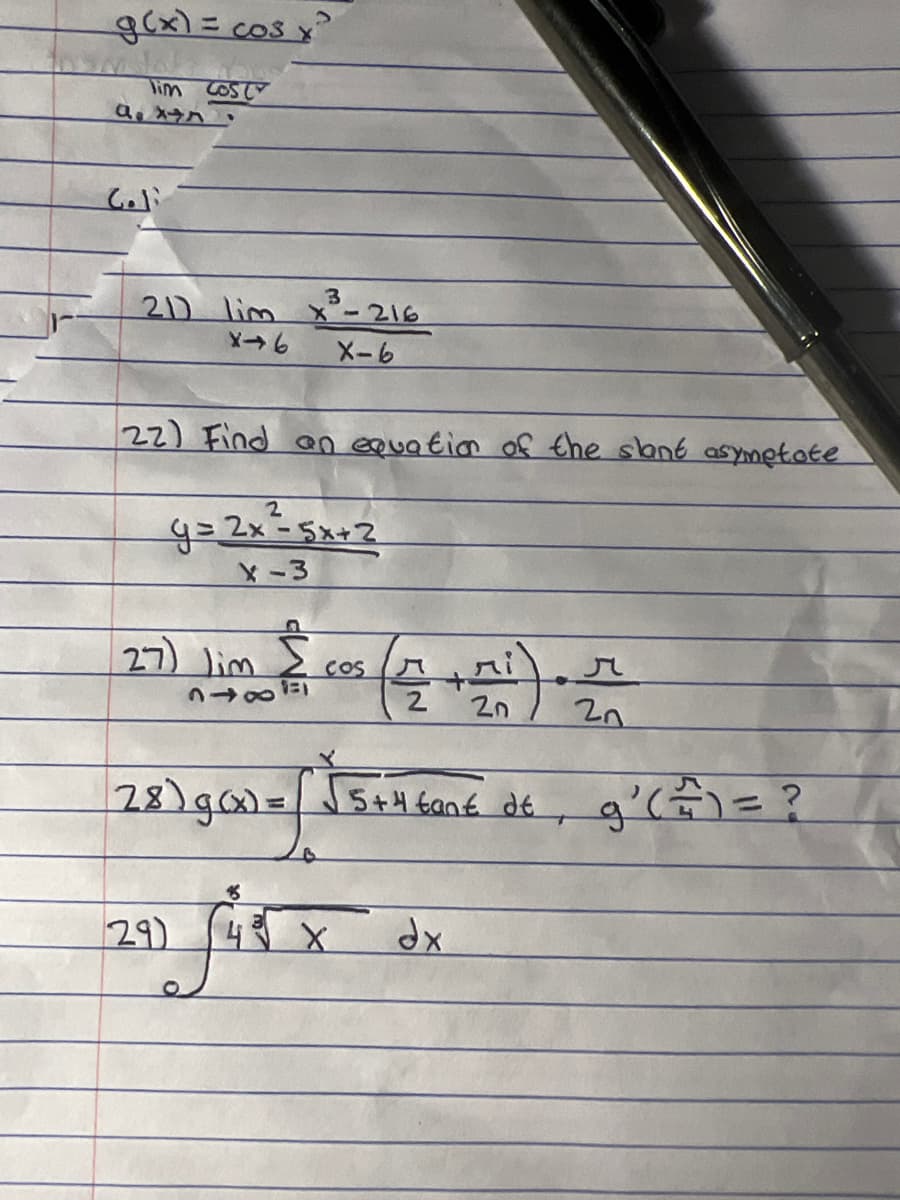 g(x) = cos x
lim cos
a. x→π
21) lim x³-216
x→6 x-6
22) Find an equation of the slant asymetote
y = 2x²-5x+2
x-3
27) lim n→∞ Σ i=1 n cos (π/2 + πi/2n) · π/2n
28) g(x) = ∫ 0 x √5+4 tant dt, g'(π/4) = ?
29) ∫ 0 8 4 ³√x dx